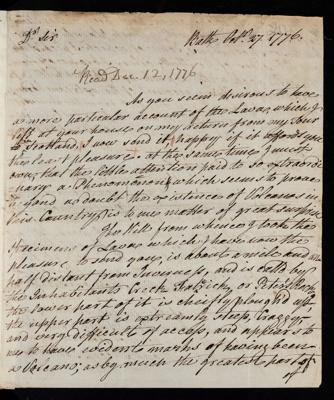 Dr. Sir
Bath Octr. 27. 1776.
Read Dec. 12, 1776
As you seem desirous to have
a more particular account of the Lavas, which I
left at your house on my return from my Tour
to Scotland, I now send it, happy if it affords you
the least pleasure: at the same time I must
own, that the little attention paid to so extraordi-
nary a Phenomenon, which seems to prove
beyond a doubt the existence of Volcanos in
this Country, is to me matter of great surprise.
The Hill from whence I took the
specimens of Lavas which I have now the
pleasure to send you, is about a mile and
half distant from Inverness, and is call'd by
the Inhabitants Creek
or Peter's Rock,
the lower part of it is chiefly plough'd up,
the upper part is extreamly steep, Craggy
and very difficult of access, and appears to
me to have evident marks of having been
a Volcano; as by much the greatest part of